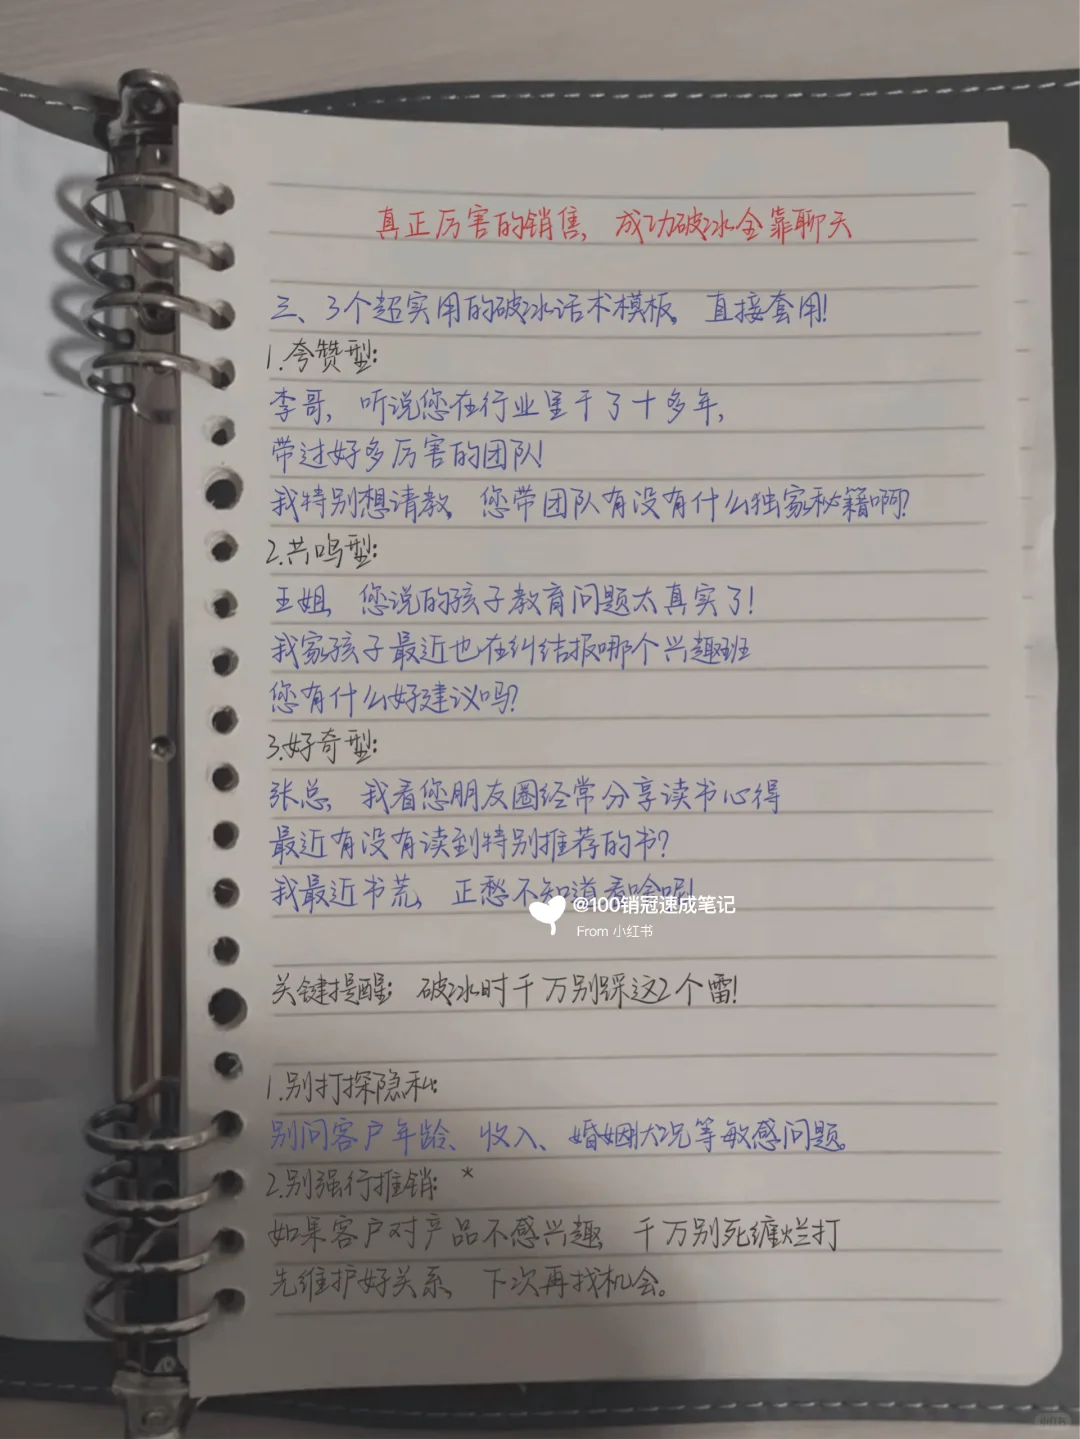 真正厉害的销售，成功破冰全靠聊天
三、3个超实用的破冰话术模板，直接套用！
1.夸赞型：
李哥，听说您在行业里干了十多年，
带过好多厉害的团队！
我特别想请教，您带团队有没有什么独家秘籍啊？
2.共鸣型：
王姐，您说的孩子教育问题太真实了！
我家孩子最近也在纠结报哪个兴趣班
您有什么好建议吗？
3.好奇型：
张总，我看您朋友圈经常分享读书心得
最近有没有读到特别推荐的书？
我最近书荒，正愁不知道看啥呢！
@100销冠速成笔记
From 小红书
关键提醒：破冰时千万别踩这2个雷！
1.别打探隐私：
别问客户年龄、收入、婚姻状况等敏感问题。
2.别强行推销：*
如果客户对产品不感兴趣，千万别死缠烂打
先维护好关系，下次再找机会。
小红书